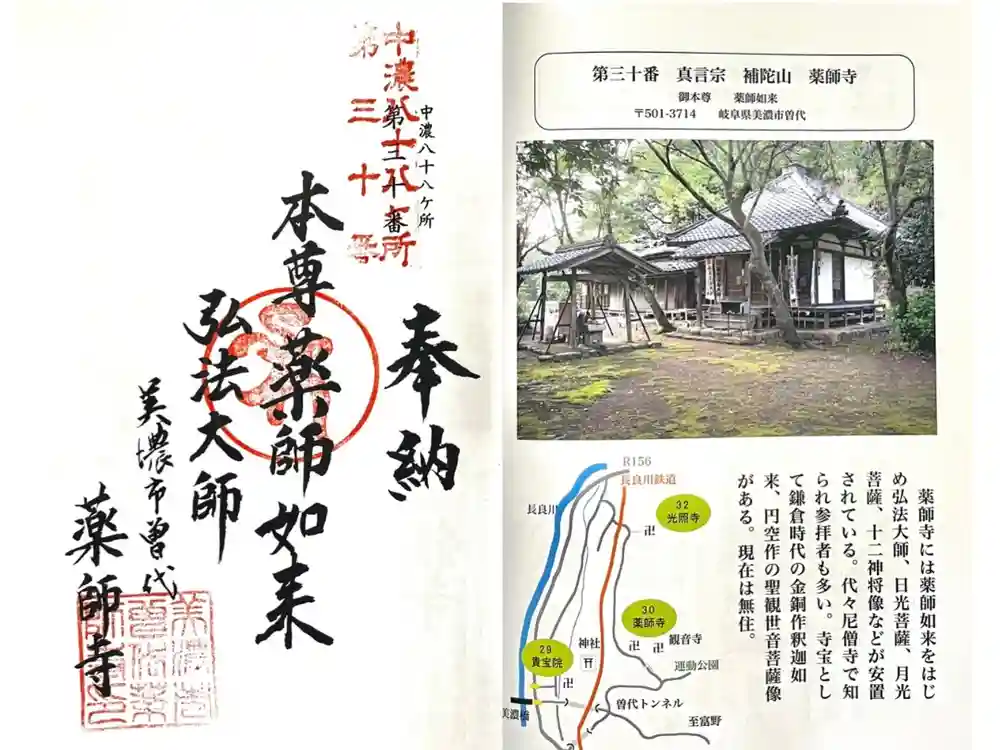 中濃八十八ケ所
第三十番
中濃八十八ヶ所
第三十番
奉納
本尊薬師如来
弘法大師
美濃市曽代
薬師寺
第三十番 真言宗 補陀山 薬師寺
御本尊 薬師如来
〒501-3714 岐阜県美濃市曽代
薬師寺には薬師如来をはじ
め弘法大師、日光菩薩、月光
菩薩、十二神将像などが安置
されている。代々尼僧寺で知
られ参拝者も多い。寺宝とし
て鎌倉時代の金銅作釈迦如
来、円空作の聖観世音菩薩像
がある。現在は無住。
R156
長良川鉄道
長良川
32
光照寺
卍
30
薬師寺
卍
卍
観音寺
神社
29
貴宝院
卍
運動公園
曽代トンネル
美濃橋
至富野